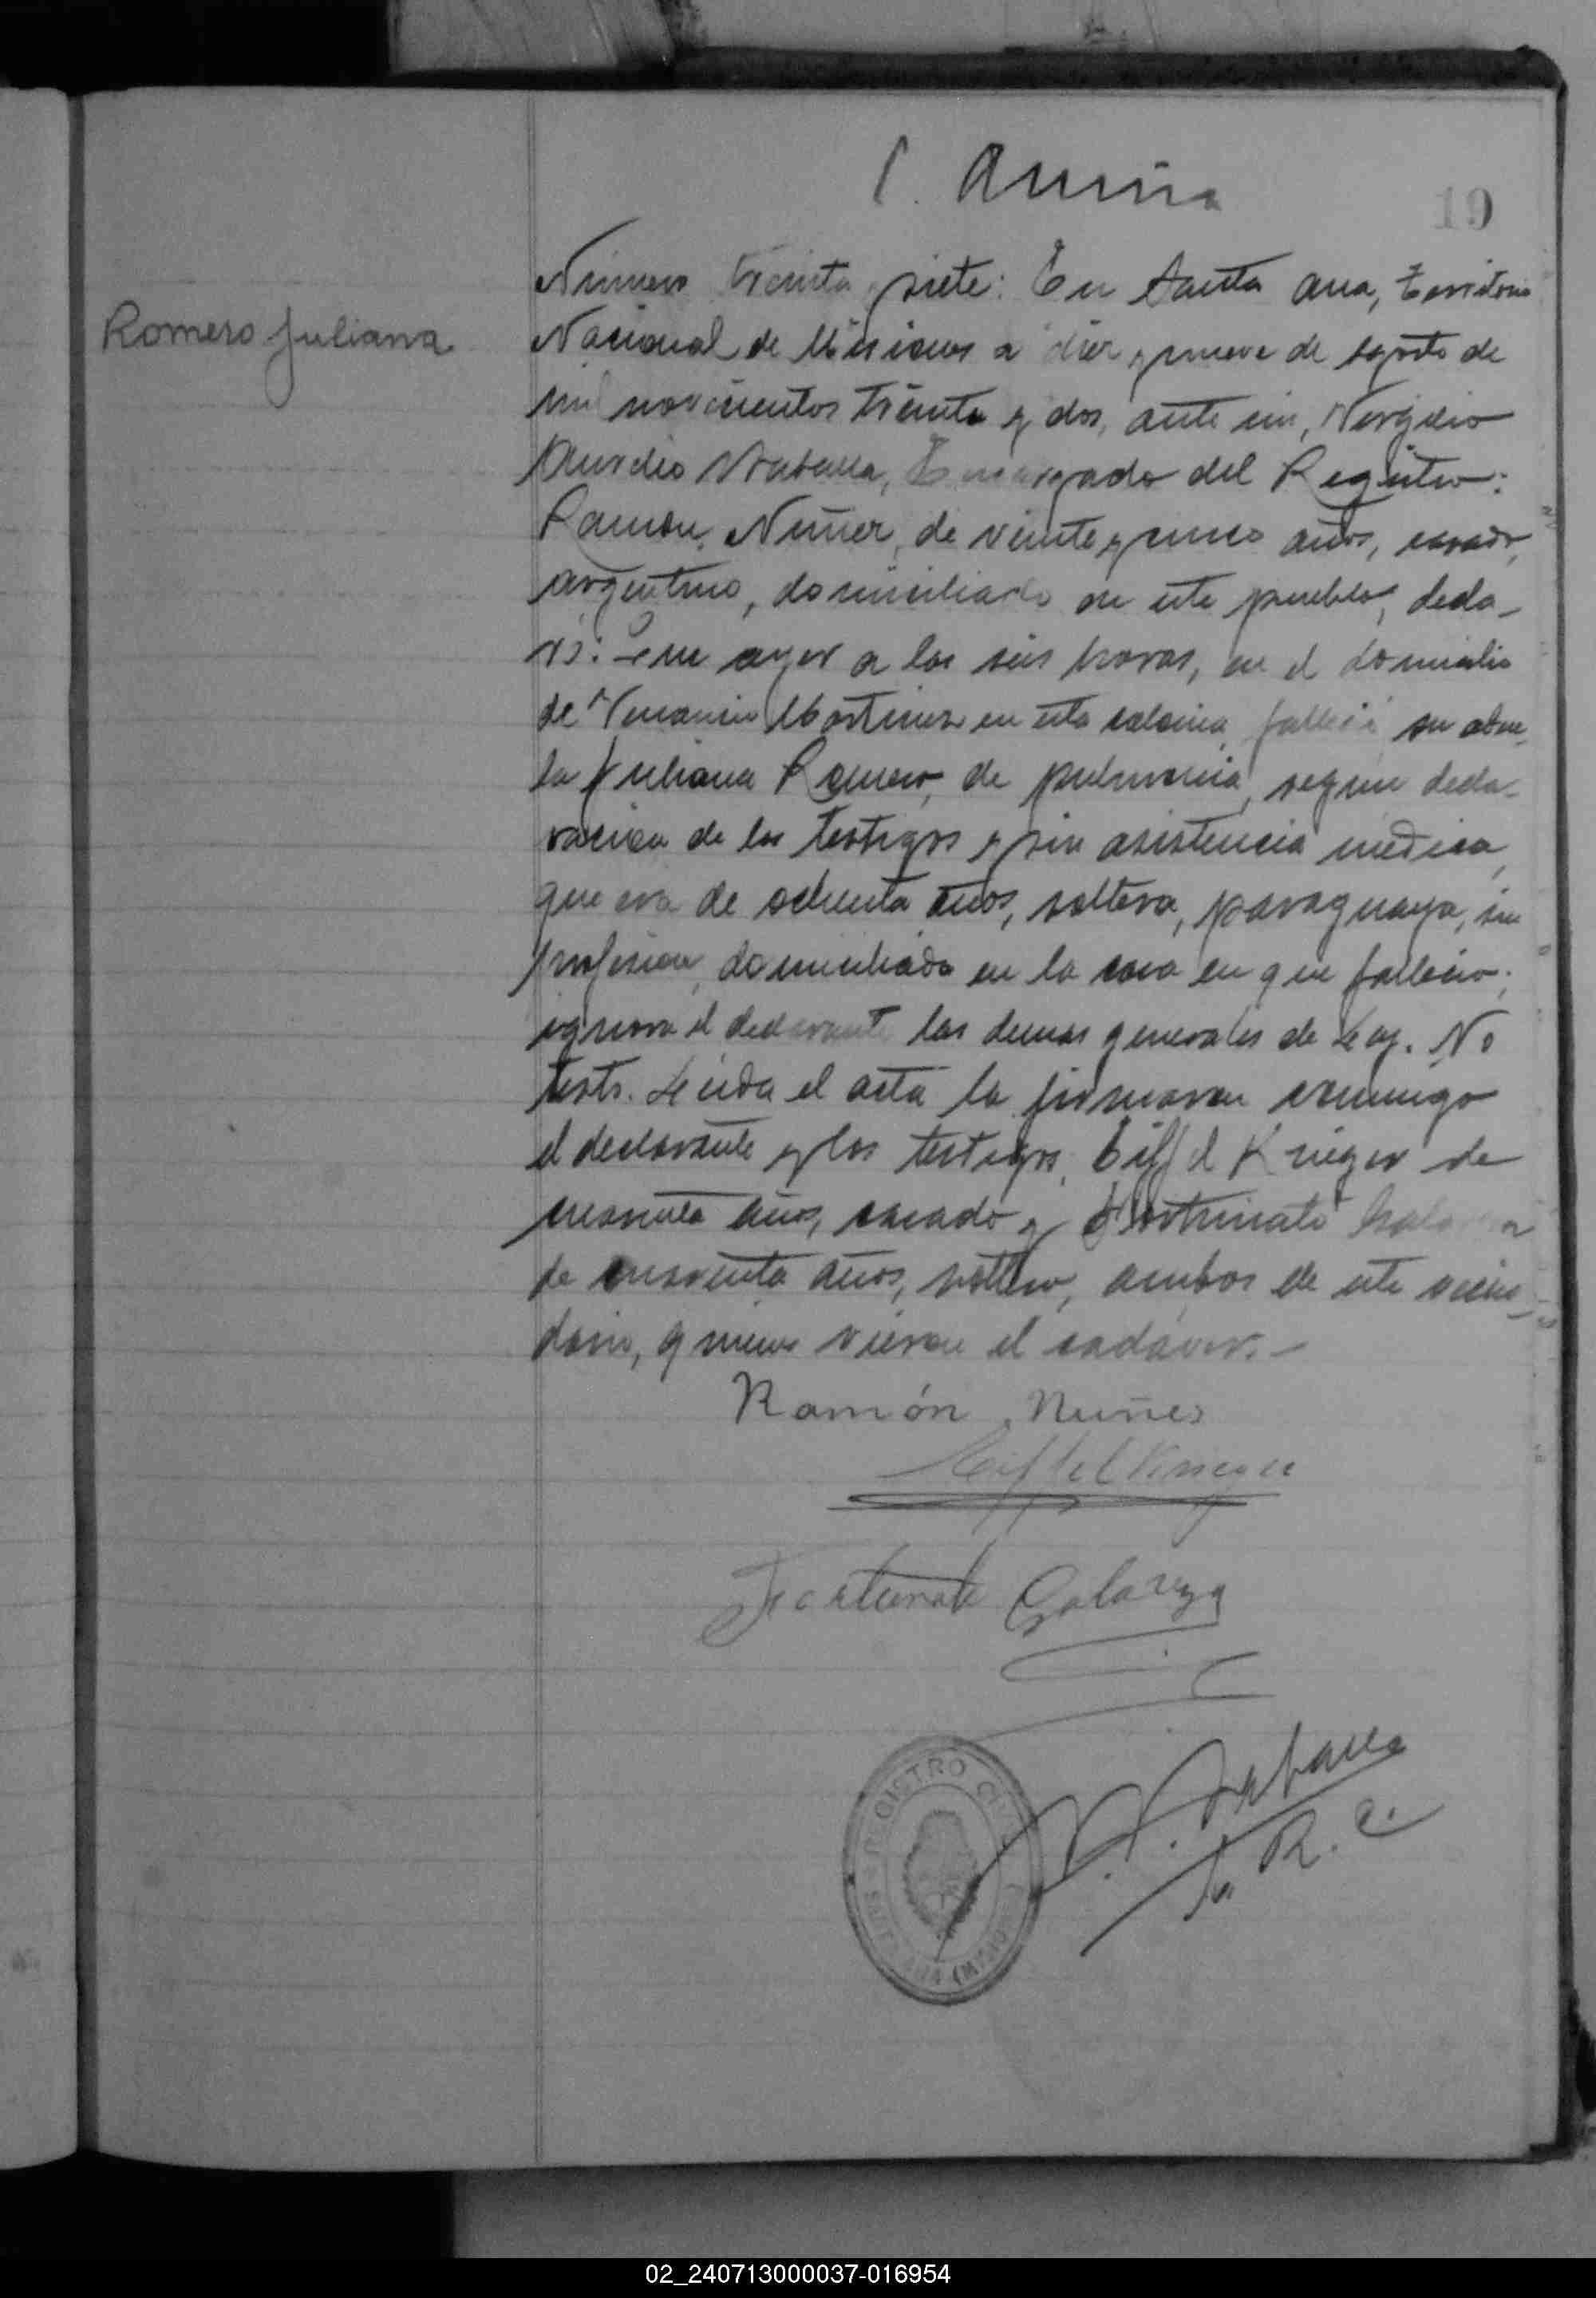 19
Romero Juliana
Número treinta y siete: En Santa Ana, Territorio
Nacional de Misiones a diez y nueve de agosto de
mil novecientos treinta y dos, ante mi,
Aurelio Encargado del Registro:
Ramón Nuñez, de veinte y cinco años, casado,
argentino, domiciliado en este pueblo, decla-
ró: Que ayer a las seis horas, en el domicilio
de Venancio Martinez en esta colonia, falleció su abue-
la Juliana Romero, de pulmonia, segun decla-
racion de los testigos y sin asistencia médica,
que era de ochenta años, soltera, paraguaya, sin
profesion, domiciliada en la casa en que fallecio;
ignora el declarante las demas generales de Ley. No
testó. Leida el acta la firmaron conmigo
el declarante y los testigos, Eiffel Krieger de
años, casado y Fortunato
de cuarenta años, soltero, ambos de este vecin-
dario, quienes vieron el cadáver.-
Ramón Nuñes
Eiffel Krieger
Fortunato Galarza
REGISTRO CIVIL
R. C.
02_240713000037-016954